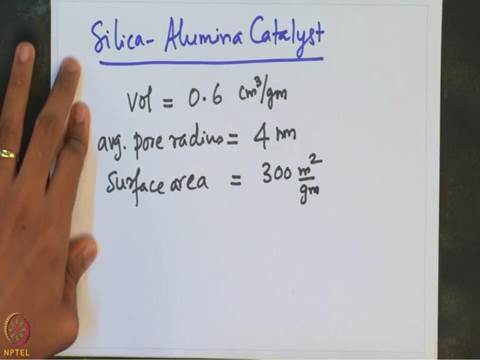 Silica-Alumina Catalyst
Vol = 0.6 cm³/gm
avg. pore radius = 4 nm
Surface area = 300 m²/gm
NPTEL